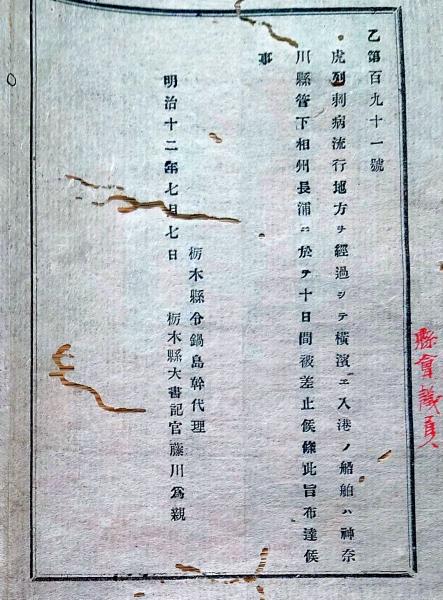 乙第百九十一號
虎列刺病流行地方ヲ經過シテ横濱エ入港ノ船舶ハ神奈
川縣管下相州長浦ニ於テ十日間被差止候條此旨布達候
事
明治十二年七月七日
栃木縣令鍋島幹代理
栃木縣大書記官藤川為親
縣會議員